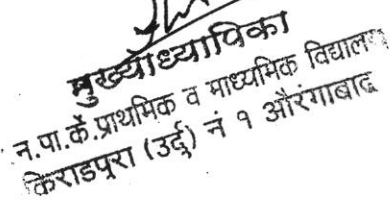 मुख्याध्यापिका
न.पा.कें.प्राथमिक व माध्यमिक विद्यालय
किराडपूरा (उर्दू) नं १ औरंगाबाद